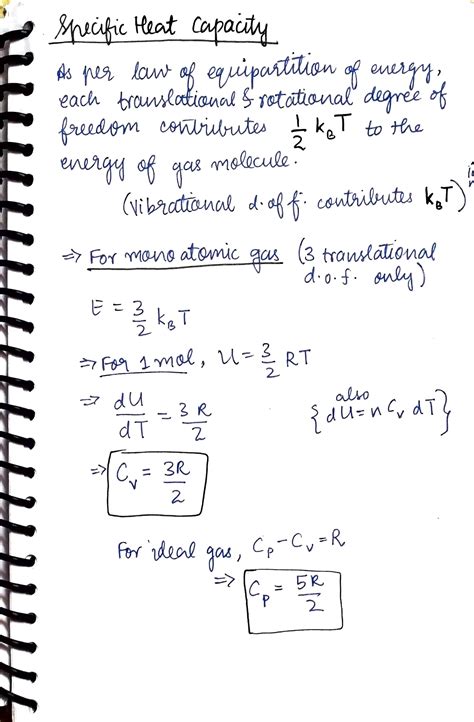 Specific Heat Capacity
As per law of equipartition of energy,
each translational & rotational degree of
freedom contributes 1/2 k_B T to the
energy of gas molecule.
(vibrational d.of f. contributes k_B T)
⇒ For monoatomic gas (3 translational
d.o.f. only)
E = 3/2 k_B T
⇒ For 1 mol, U = 3/2 RT
⇒ dU/dT = 3R/2 {also dU = n C_v dT}
⇒ C_v = 3R/2
For ideal gas, C_p - C_v = R
⇒ C_p = 5R/2